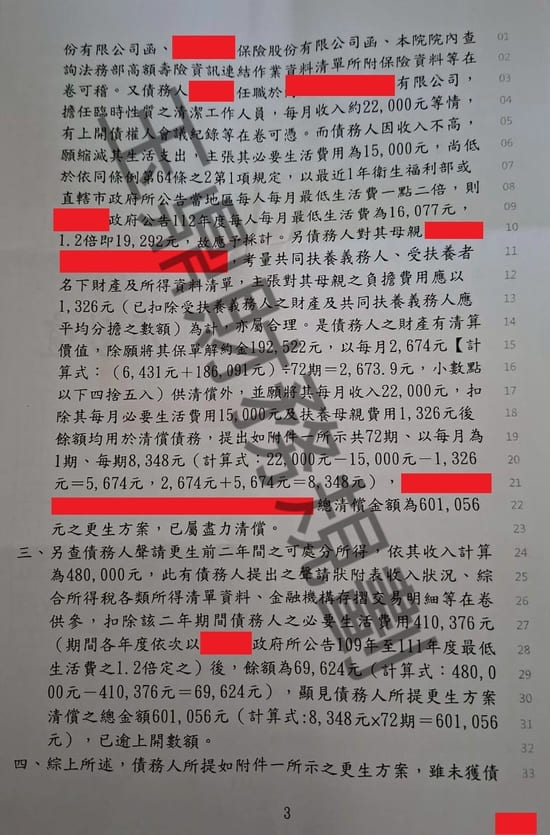 份有限公司函、保險股份有限公司函、本院院內查 01
詢法務部高額壽險資訊連結作業資料清單所附保險資料等在 02
卷可稽。又債務人任職於有限公司, 03
擔任臨時性質之清潔工作人員,每月收入約22,000元等情, 04
有上開債權人會議紀錄等在卷可憑。而債務人因收入不高, 05
願縮減其生活支出,主張其必要生活費用為15,000元,尚低 06
於依同條例第64條之2第1項規定,以最近1年衛生福利部或 07
直轄市政府所公告當地區每人每月最低生活費一點二倍,則 08
政府公告112年度每人每月最低生活費為16,077元, 09
1.2倍即19,292元,故應予採計。另債務人對其母親 10
,考量共同扶養義務人、受扶養者 11
名下財產及所得資料清單,主張對其母親之負擔費用應以 12
1,326元(已扣除受扶養義務人之財產及共同扶養義務人應 13
平均分擔之數額)為計,亦屬合理。是債務人之財產有清算 14
價值,除願將其保單解約金192,522元,以每月2,674元【計 15
算式:(6,431元+186,091元)÷72期=2,673.9元,小數點 16
以下四捨五入】供清償外,並願將其每月收入22,000元,扣 17
除其每月必要生活費用15,000元及扶養母親費用1,326元後 18
餘額均用於清償債務,提出如附件一所示共72期、以每月為 19
1期、每期8,348元(計算式:22,000元-15,000元-1,326 20
元=5,674元,2,674元+5,674元=8,348元), 21
總清償金額為601,056 22
元之更生方案,已屬盡力清償。 23
三、另查債務人聲請更生前二年間之可處分所得,依其收入計算 24
為480,000元,此有債務人提出之聲請狀附表收入狀況、綜 25
合所得稅各類所得清單資料、金融機構存摺交易明細等在卷 26
供參,扣除該二年期間債務人之必要生活費用410,376元 27
(期間各年度依次以政府所公告109年至111年度最低 28
生活費之1.2倍定之)後,餘額為69,624元(計算式:480,0 29
00元-410,376元=69,624元),顯見債務人所提更生方案 30
清償之總金額601,056元(計算式:8,348元x72期=601,056 31
元),已逾上開數額。 32
四、綜上所述,債務人所提如附件一所示之更生方案,雖未獲債 33
3